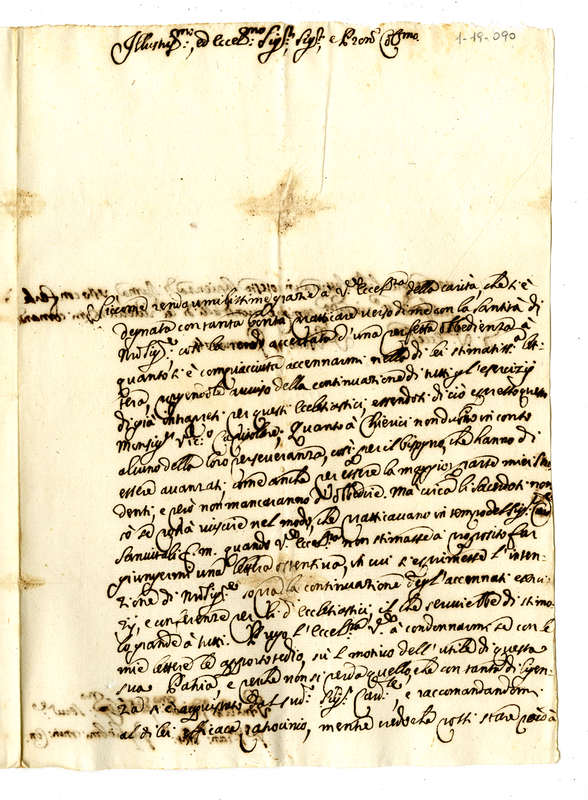 Illustr.mo, ed Eccell.mo Sig.r, Sig.r, e Pron Col.mo
1-19-090
Siccome rendo umilissime grazie a V.ra Eccell.za della carità, che si è
degnato con tanta bontà pratticare verso di me con la Santità di
Nro Sig.re, così la rendo accertata d'una perfetta obbedienza a
quanto si è compiaciuta accennarmi nella di lei stimatiss.a let-
tera, avviso della continuazione di tutti gl'esercizij
di già intrapresi per questi Ecclesiastici, essendosi di ciò espresso questo
Monsig.r Vic.o Quanto a Chierici non dubito in conto
alcuno della loro perseveranza, così per il bisogno, che hanno di
essere avanzati, come anche per essere la maggior parte miei
denti, e però non mancaranno d'obbedire. Ma circa li Sacerdoti non
so se potrà riuscire nel modo, che pratticavano in tempo del Sig.r Card.
Sanvitali f.m. quando V.ra Eccell.za non stimasse a proposito far
giungermi una lettera ostentiva, in cui s'esprimesse l'inten-
zione di Nro Sig.re sopra la continuazione degl'accennati eserci-
zij, e conferenze per li d.i Ecclesiastici, il che servirebbe di stimo-
lo grande à tutti. Prego l'Eccell.za V.ra à condonarmi se con le
mie lettere le apporto tedio, sul motivo dell'utile di questa
sua Patria, e perche non si perda quello, che con tanta diligen-
za s'è acquistato dal sud.o Sig.r Card.le, e raccomandandomi
al di lei efficace patrocinio, mentre vedo che potti stare